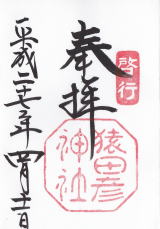 啓行
奉拝
猿田彦
神社
平成二十七年四月十二日